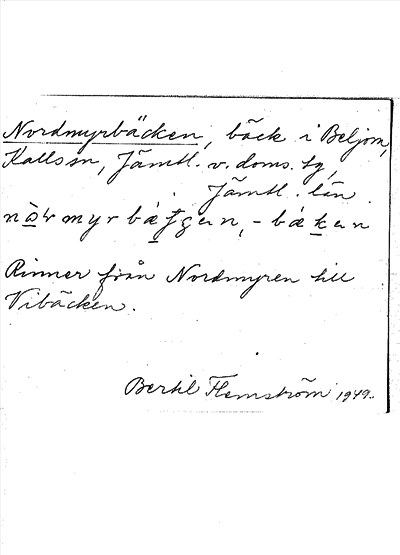 Nordmyrbäcken, bäck i Beljom,
Kallssn, Jämtl. v. doms. tg,
Jämtl. län.
Rinner från Nordmyren till
Vibäcken.
Bertil Flemström 1949.